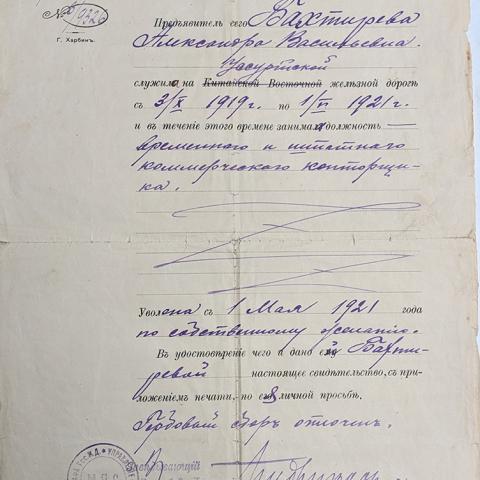 № 10226
Г. Харбинъ.
Предъявитель сего Бахтирева
Александра Васильевна.
Уссурійской
служила на Китайской Восточной желѣзной дорогѣ
съ 3/X 1919 г. по 1/VI 1921 г.
и въ теченіе этого времени занимала должность
временного и штатного
коммерческого конторщи-
ка.
Уволена съ 1 Мая 1921 года
по собственному желанію.
Въ удостовѣреніе чего и дано ей Бахти-
ревой настоящее свидѣтельство, съ при-
ложеніемъ печати, по ея личной просьбѣ.
Гербовый сборъ оплоченъ.
УПРАВЛЕНІЕ
М.П.С.
Завѣдывающій